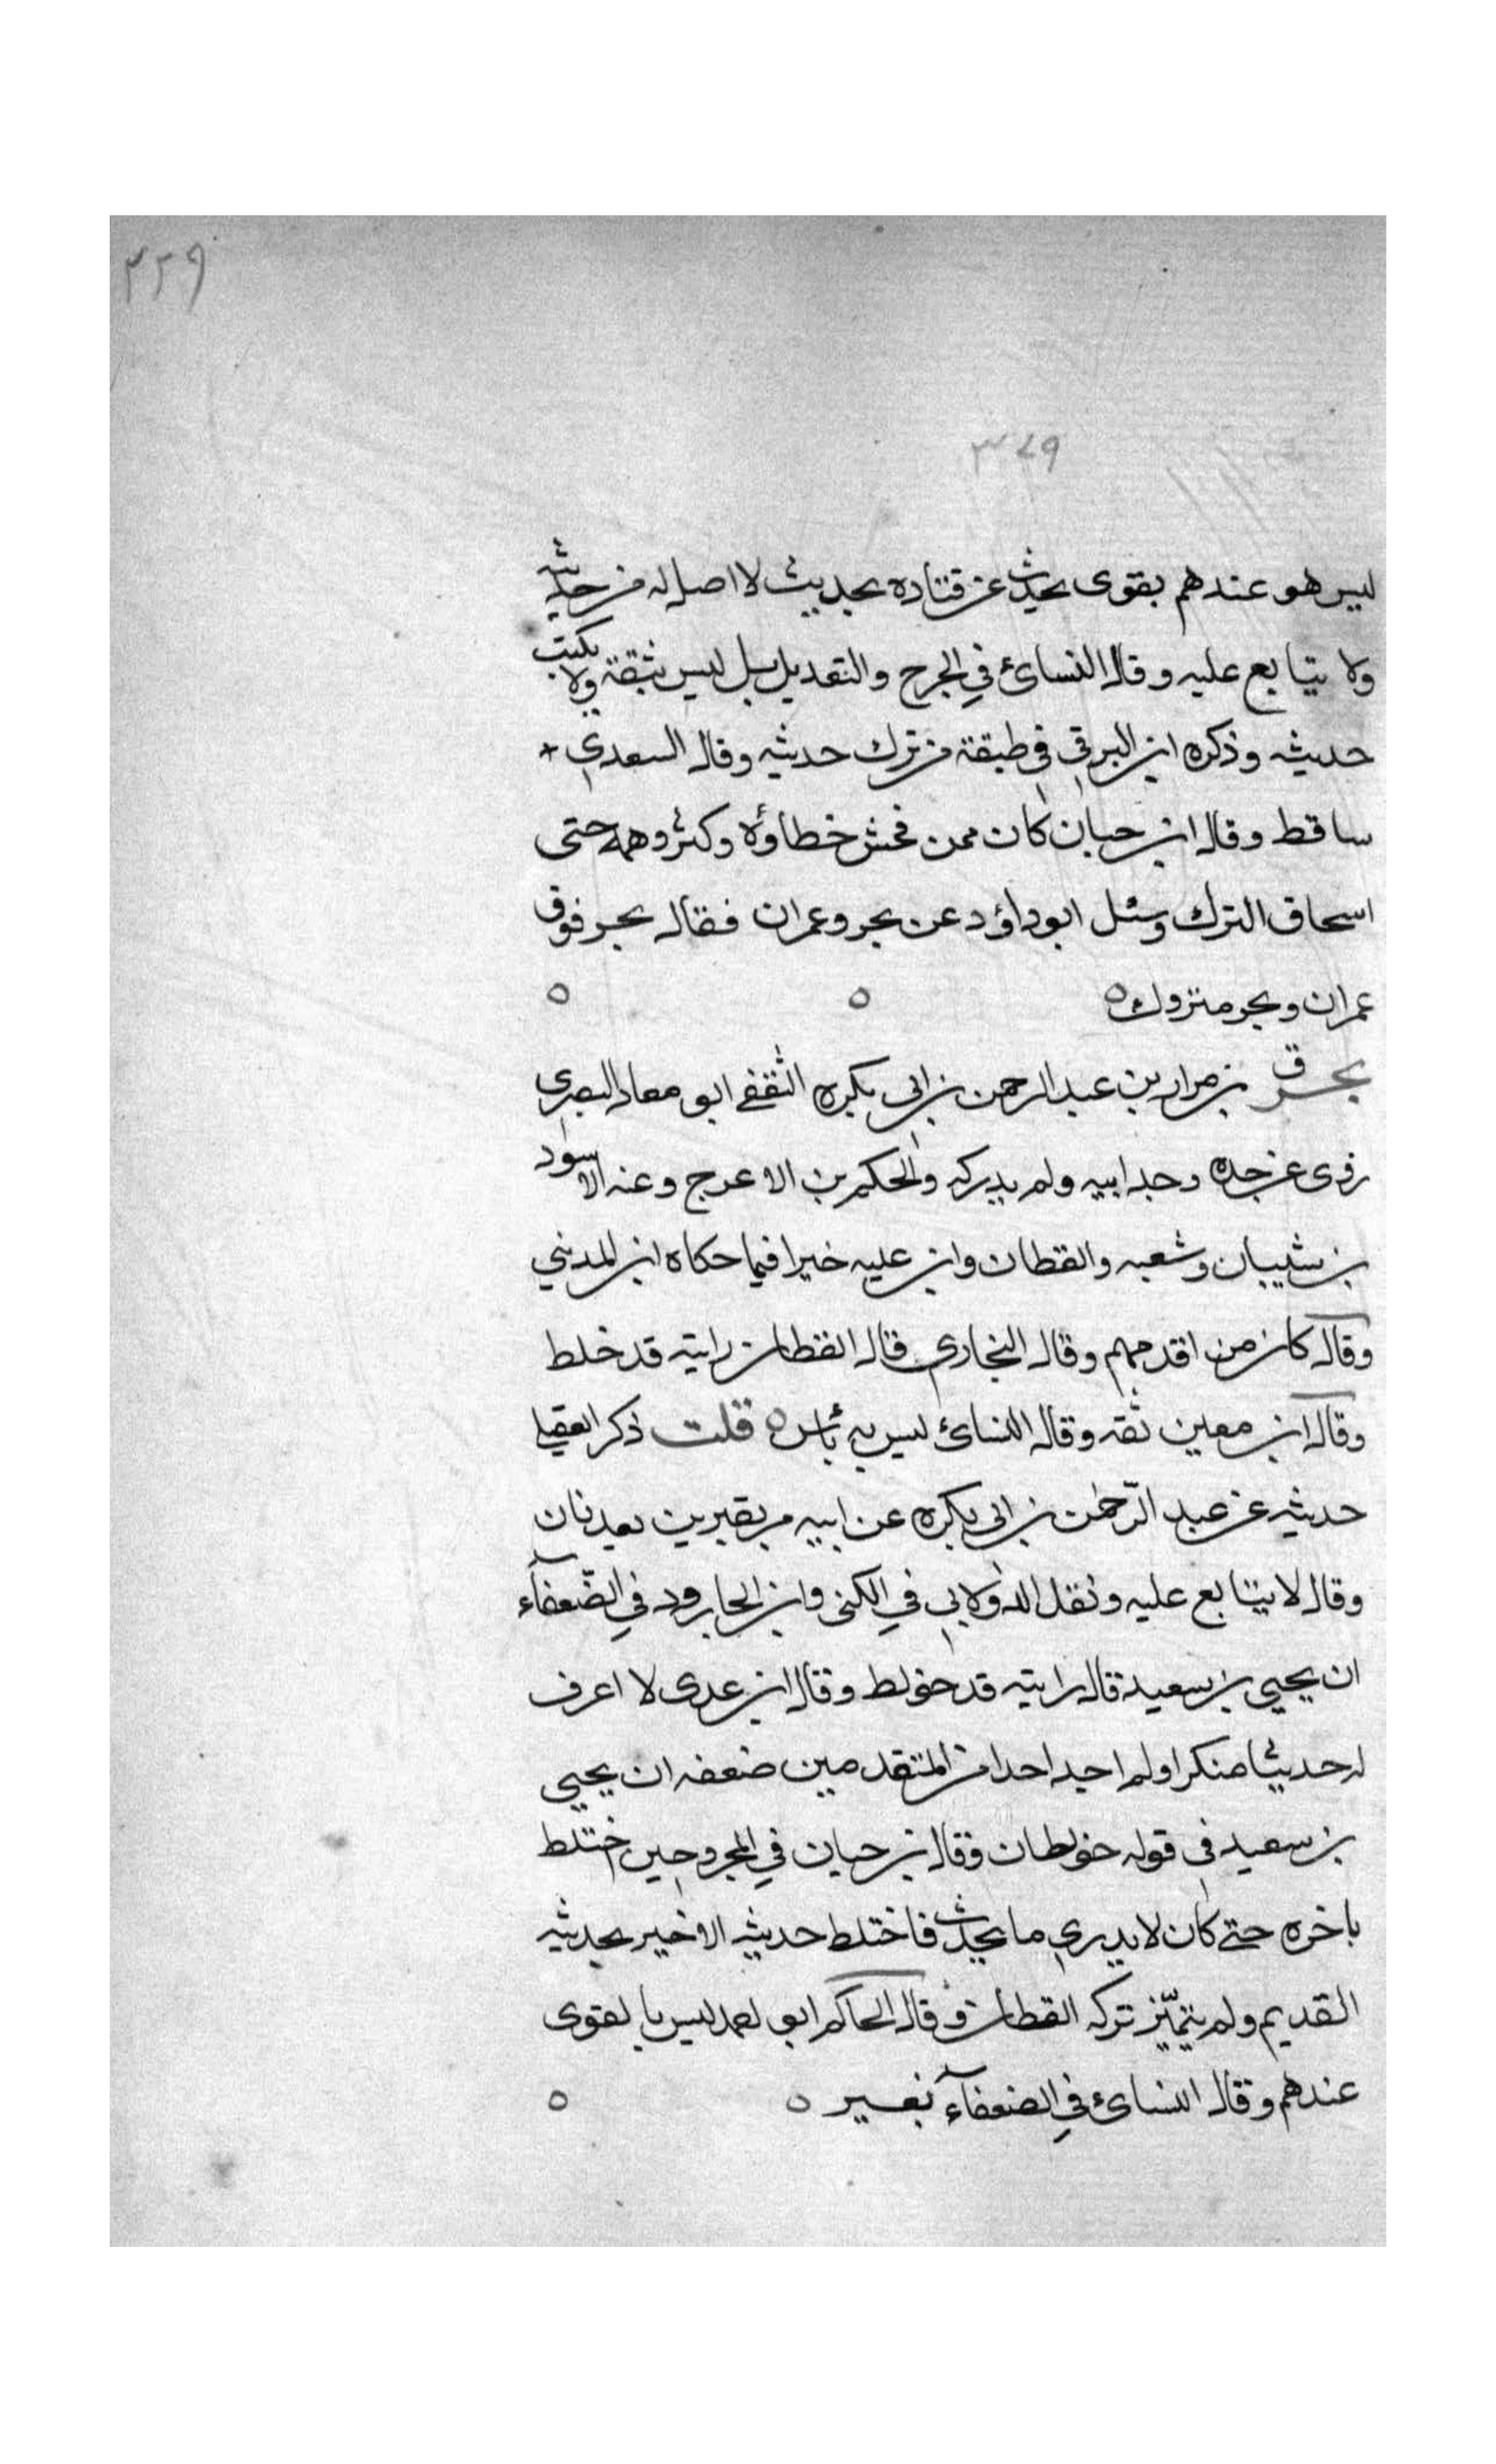 ٣٢٩
٣٤٩
ليس هو عندهم بقوى يحدث عن قتاده بحديث لا اصل له من حديثه
ولا يتابع عليه وقال النسائ في الجرح والتعديل بل ليس بثقة ولا يكتب
حديثه وذكره ابن البرقي في طبقة من ترك حديثه وقال السعدي
ساقط وقال ابن حبان كان ممن فحش خطاؤه وكثر وهمه حتى
اسحاق الترك وسئل ابو داؤد عن بحر وعمران فقال بحر فوق
عمران وبحر متروك ه ه ه
بحر ق بن مرار بن عبد الرحمن بن ابي بكره الثقفي ابو معاد البصري
روى عن جده وجد ابيه ولم يدركه والحكم بن الاعرج وعنه الاسود
بن شيبان وشعبه والقطان وابن عليه خيرا فيما حكاه ابن المدينى
وقال كان من اقدمهم وقال البخاري قال القطان رايته قد خلط
وقال ابن معين ثقه وقال النسائ ليس به بأس ه قلت ذكر العقيلي
حديثه عن عبد الرّحمن بن ابي بكره عن ابيه مر بقبرين يعدنان
وقال لا يتابع عليه ونقل الدولابي في الكنى وابن الجارود في الضّعفآء
ان يحيي بن سعيد قال رايته قد خولط وقال ابن عدى لا اعرف
له حديثا منكرا ولم اجد احدا من المتقدمين ضعفه ان يحيي
بن سعيد في قوله خولطان وقال بن حبان في المجروحين اختلط
باخره حتى كان لا يدري ما يحدث فاختلط حديثه الاخير بحديثه
القديم ولم يتميّز تركه القطان وقال الحاكم ابو لحمد ليس بالقوى
عندهم وقال النسائ في الضعفآء نغسير ه ه